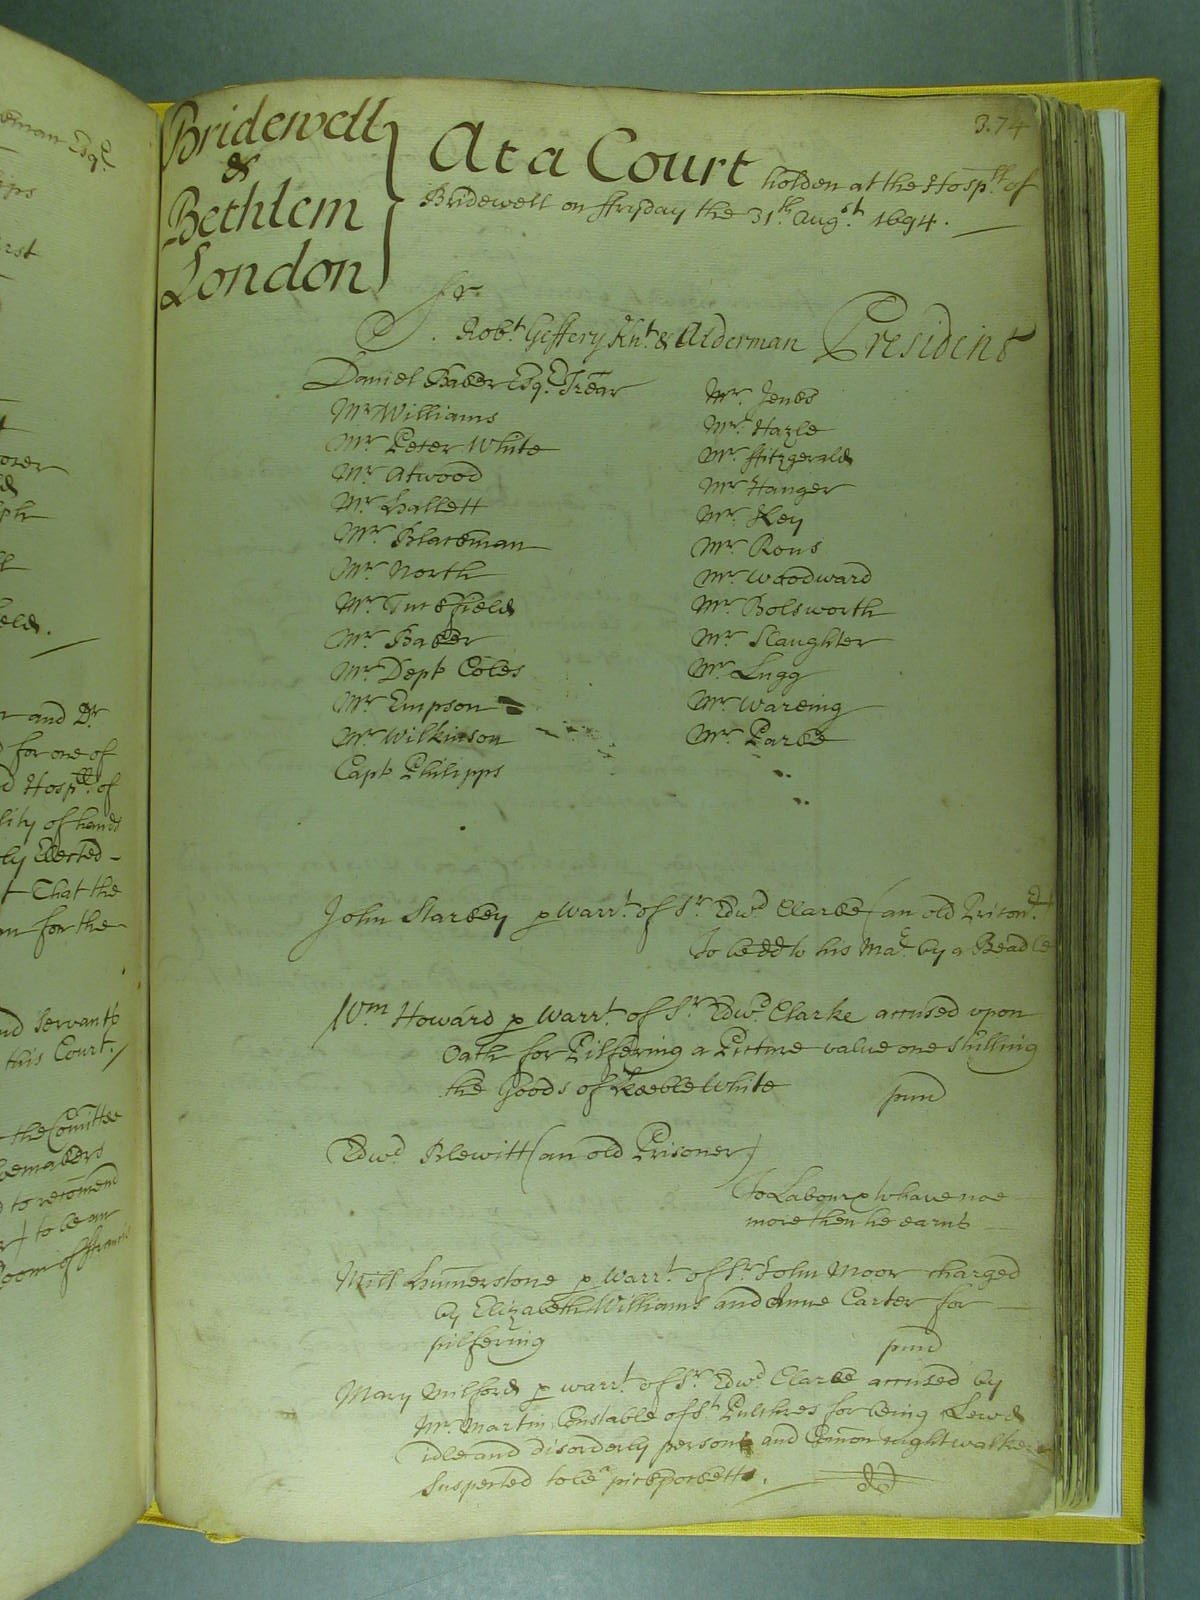 374
Bridewell
&
Bethlem
London
At a Court holden at the Hosp:ll of
Bridewell on ffryday the 31:th Aug:st 1694.
Sr.
Rob:t Geffery Kn:t & Alderman President
Daniel Baker Esq:r Trear
Mr Williams
Mr Peter White
Mr Atwood
Mr Hallett
Mr Blackman
Mr North
Mr Tuckfield
Mr Baker
Mr Dept Coles
Mr Empson
Mr Wilkinson
Capt Philipps
Mr. Jenks
Mr. Hazle
Mr ffitzgerald
Mr Hanger
Mr. Key
Mr. Rous
Mr. Woodward
Mr. Bolsworth
Mr Slaughter
Mr. Lugg
Mr. Wareing
Mr. Parke
John Starkey p Warr:t of Sr Edwd Clarke (an old Prison:er
To be dd to his Ma:r by a Beadle
Wm Howard p Warr:t of Sr Edwd. Clarke accused upon
Oath for Pilfering a Picture value one shilling
the Goods of Keeble White pun
Edwd Blewitt (an old Prisoner)
To Labour & have noe
more then he earns
Mill p Warr:t of Sr John Moor charged
by Elizabeth Williams and Anne Carter for
pilfering pun
Mary Milford p warr:t of Sr Edwd Clarke accused by
Mr. Martin Constable of St Pulchres for being Lewd
idle and disorderly person and Comon nightwalker
suspected to be a pickpockett. dd
eman Esqr
pps
rst
and Dr
for one of
d Hosp:ll of
lity of hands
ly Elected
That the
for the
nd Servants
this Court.
the Comittee
oemakers
to recomend
to be an
oom of ffrancis